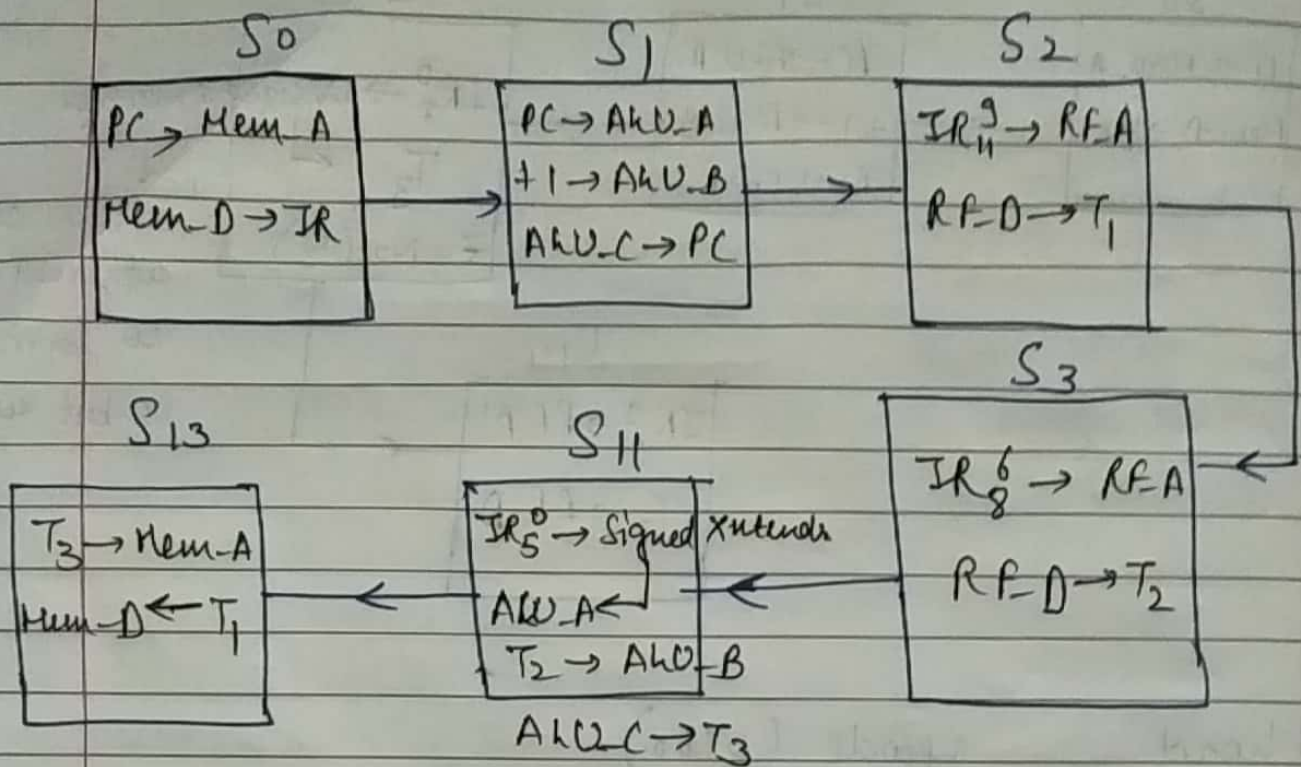 S0
PC → Mem_A
Mem_D → IR
S1
PC → ALU_A
+1 → ALU_B
ALU_C → PC
S2
IR 9 11 → RF_A
RF_D → T1
S3
IR 6 8 → RF_A
RF_D → T2
S11
IR 0 5 → Signed Xntends
ALU_A ←
T2 → ALU_B
ALU_C → T3
S13
T3 → Mem_A
Mem_D ← T1